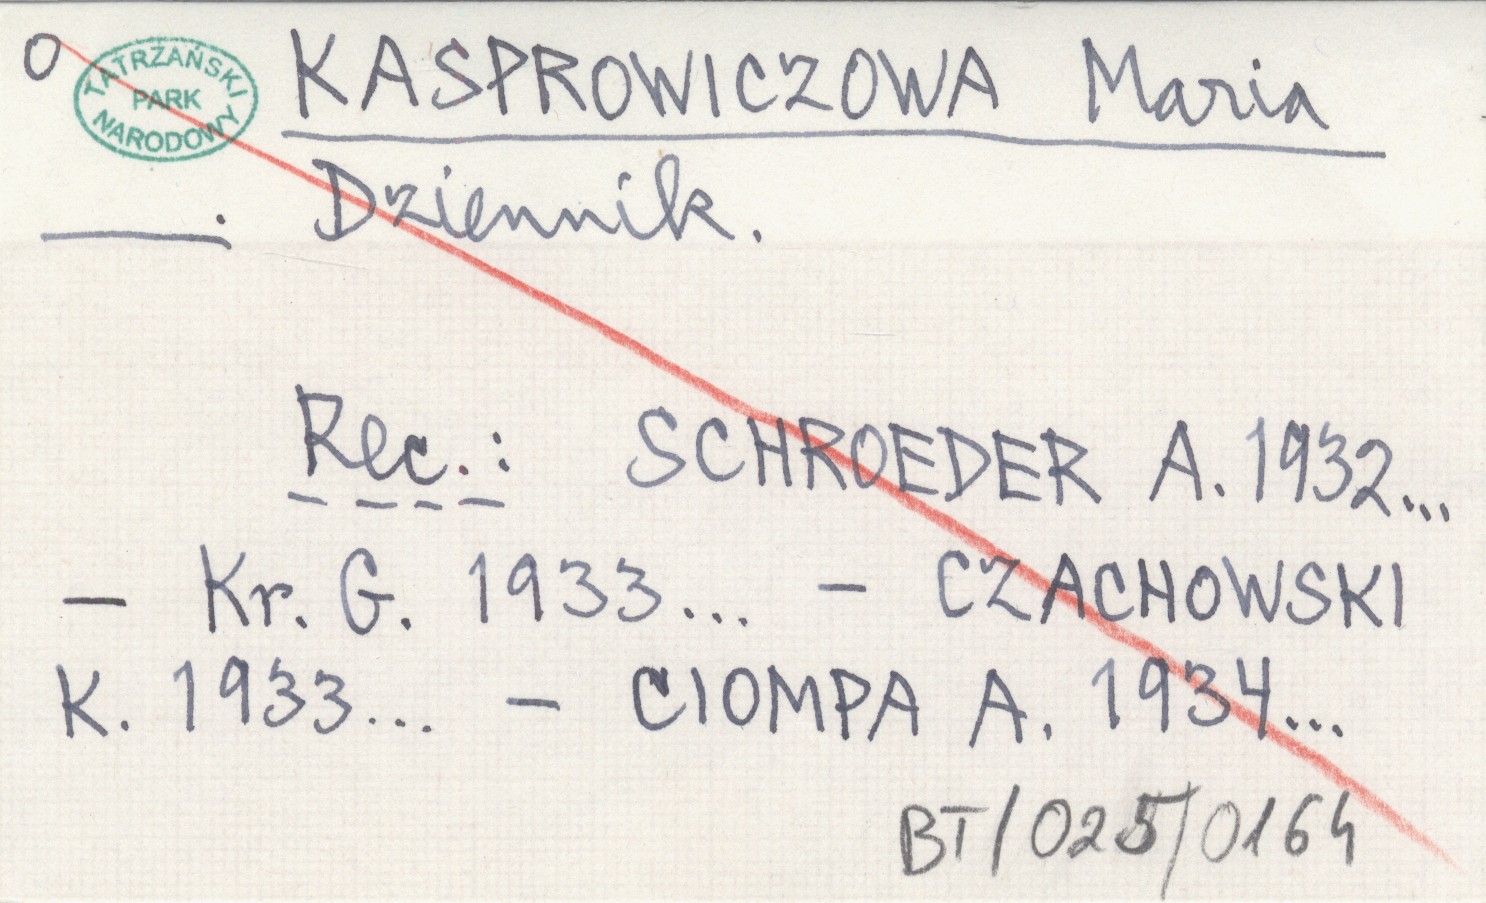 O
TATRZAŃSKI
PARK
NARODOWY
KASPROWICZOWA Maria
——. Dziennik.
Rec.: SCHROEDER A. 1932...
– Kr. G. 1933... – CZACHOWSKI
K. 1933... – CIOMPA A. 1934...
BT/025/0164